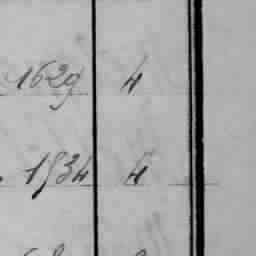 1629 4
1534 4